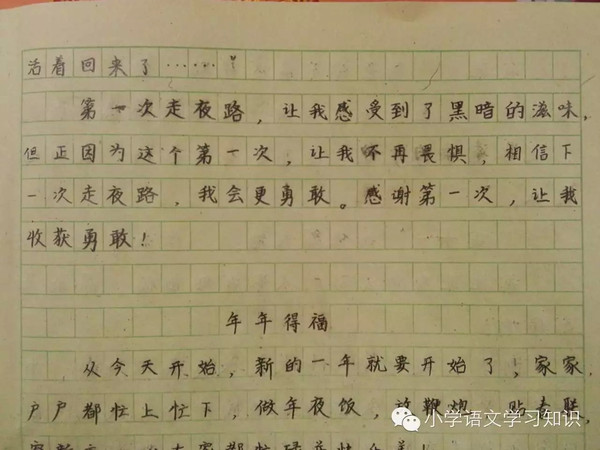 活着回来了……！
第一次走夜路，让我感受到了黑暗的滋味，
但正因为这个第一次，让我不再畏惧，相信下
一次走夜路，我会更勇敢。感谢第一次，让我
收获勇敢！
年年得福
从今天开始，新的一年就要开始了！家家
户户都忙上忙下，做年夜饭，放鞭炮，贴春联，
小学语文学习知识